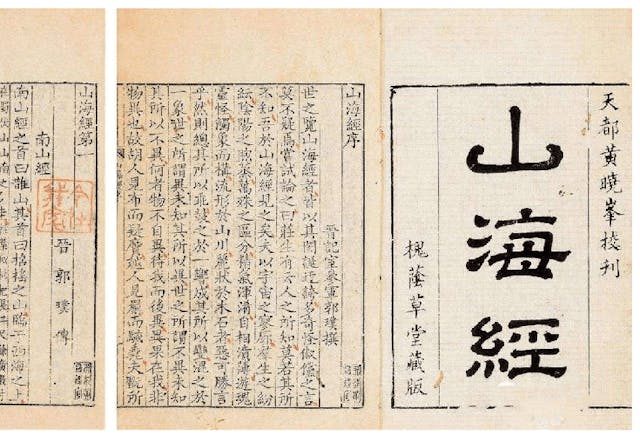 天都黃曉峯挍刊
山海經
槐蔭草堂藏版
山海經序
晉記室參軍郭璞撰
世之覽山海經者皆以其閎誕迂誇多奇怪俶儻之言
莫不疑焉嘗試論之曰莊生有云人之所知莫若其所
不知吾於山海經見之矣夫以宇宙之寥廓羣生之紛
紜陰陽之煦蒸萬殊之區分精氣渾淆自相濆薄遊魂
靈怪觸象而構流形於山川麗狀於木石者惡可勝言
乎然則總其所以乖鼓之於一響成其所以變混之於
一象世之所謂異未知其所以異世之所謂不異未知
其所以不異何者物不自異待我而後異異果在我非
物異也故胡人見布而疑黂越人見罽而駭毳夫翫所
山海經第一
南山經
晉 郭璞 傳
南山經之首曰䧿山其首曰招搖之山臨于西海之上